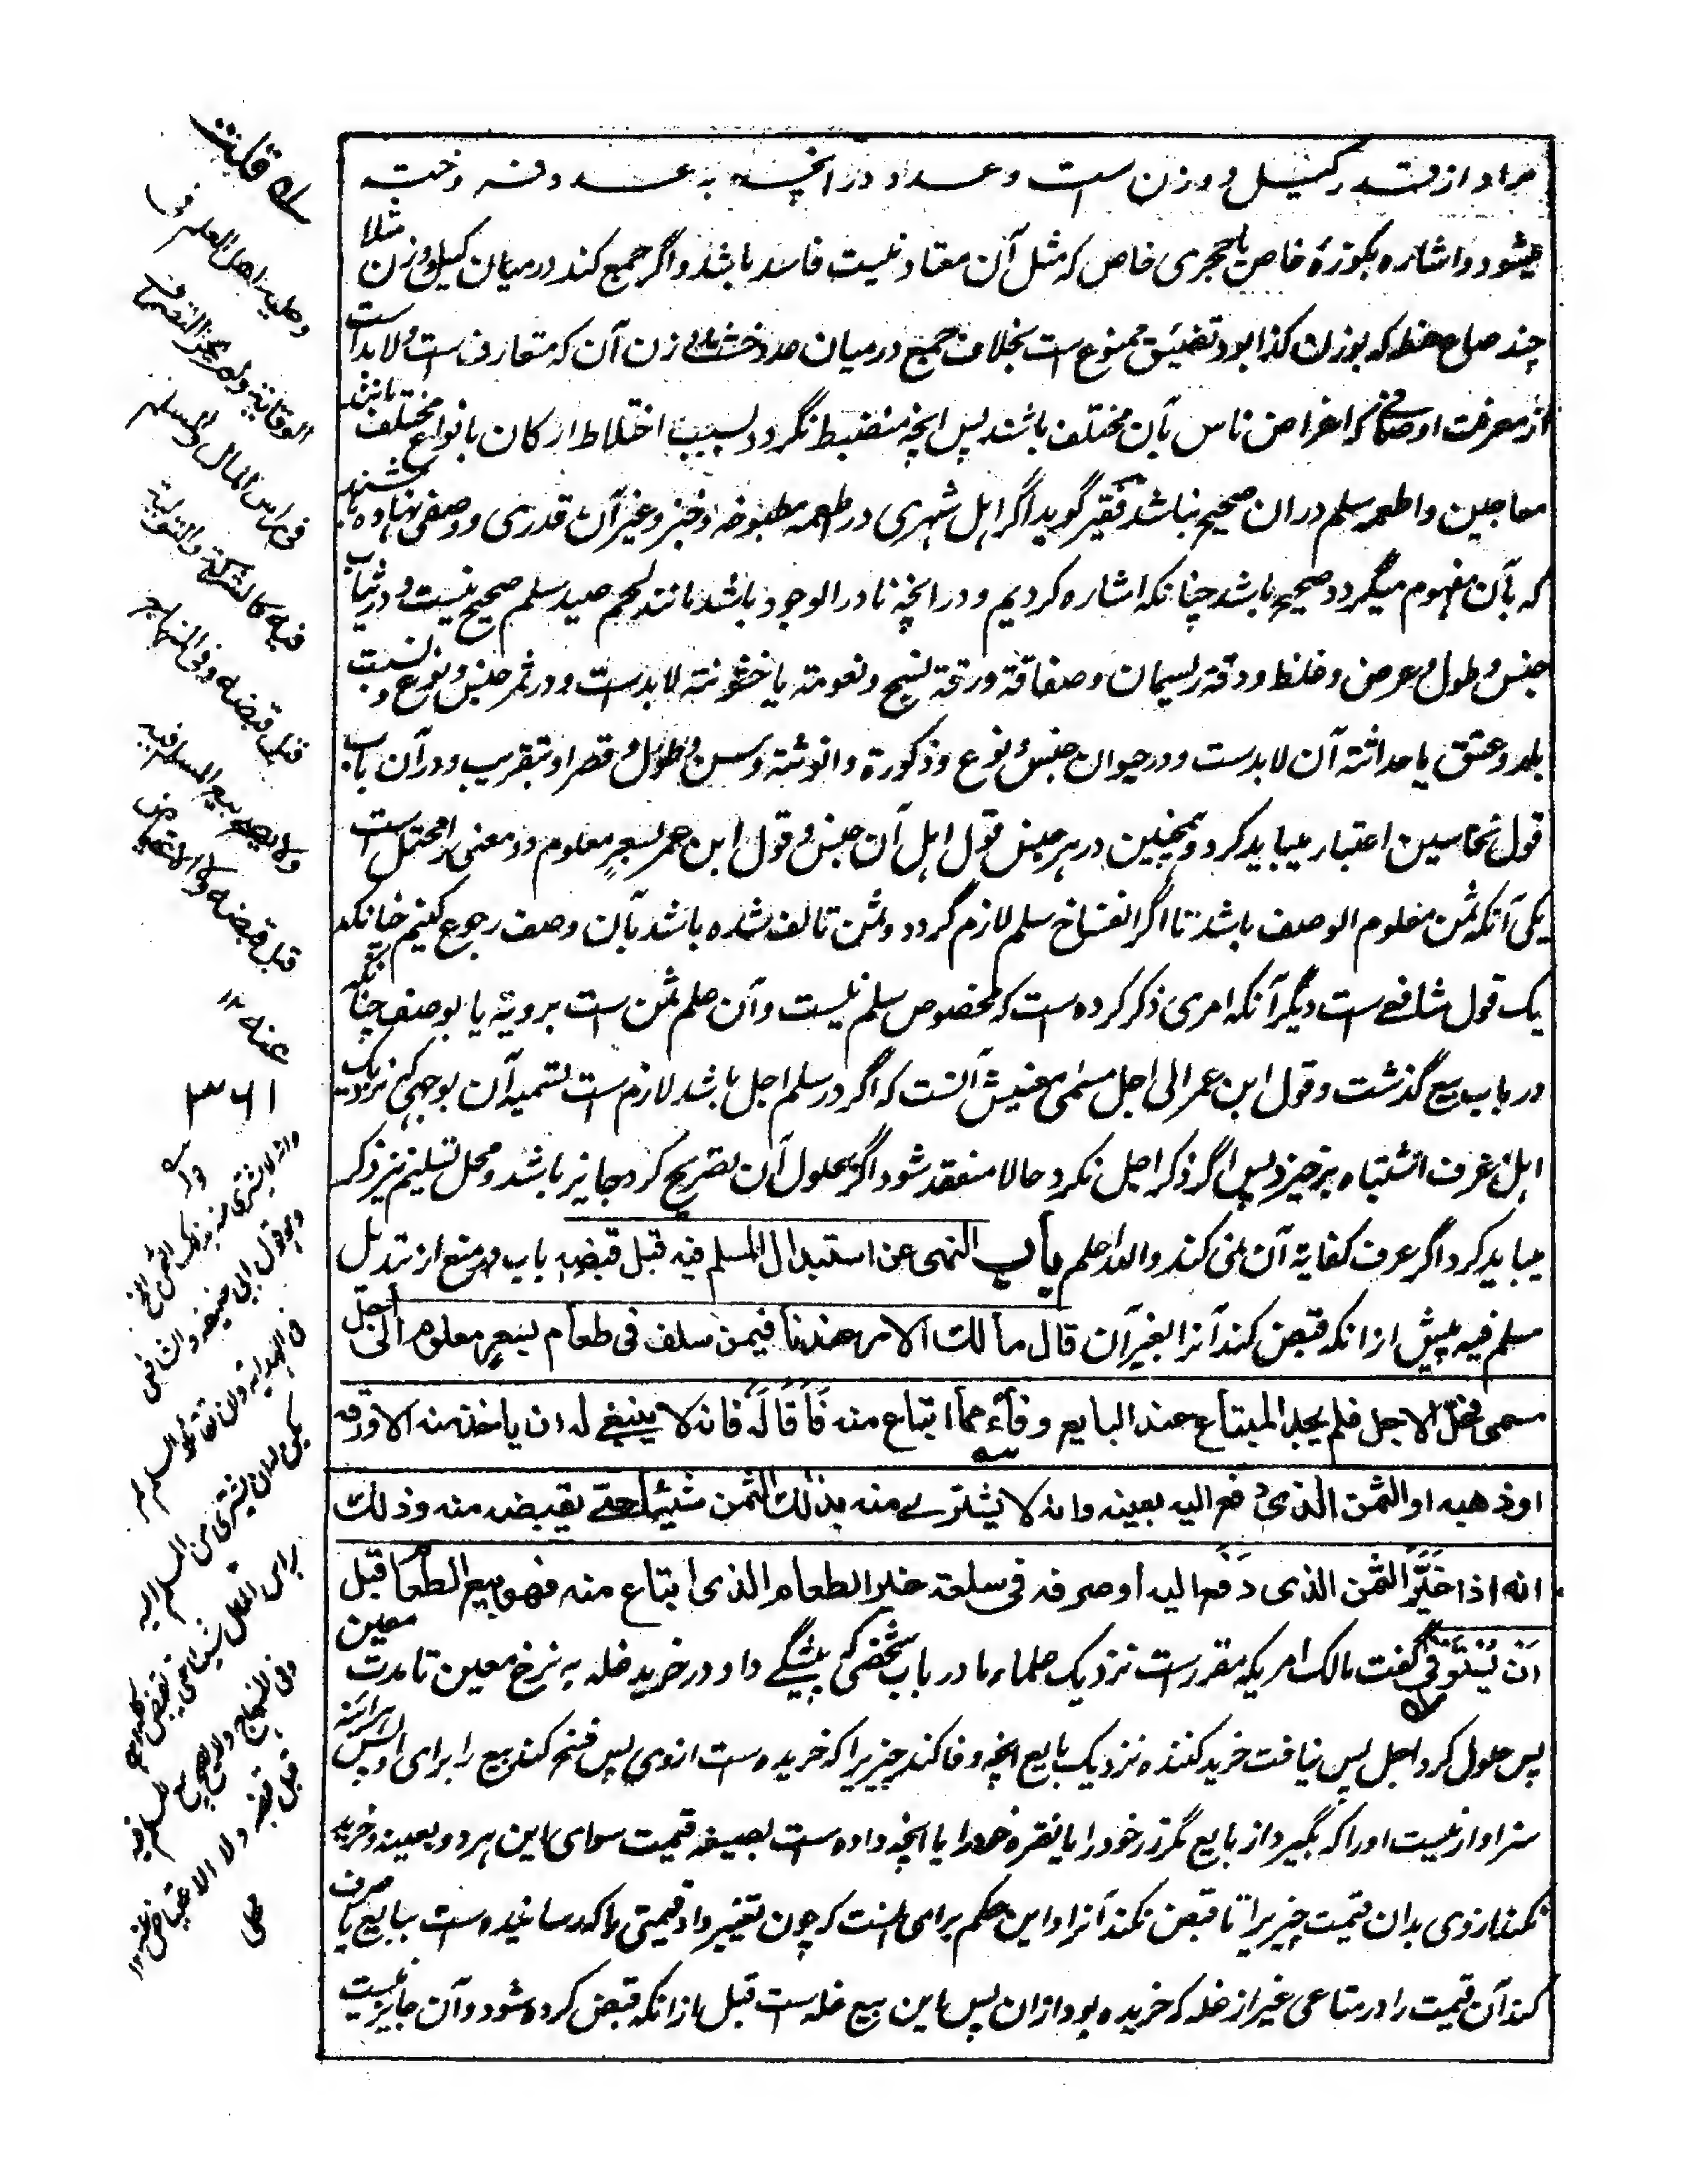 مراد از قدر کیل و وزن ست و عدد در انچه به عدد فروخته
میشود و اشاره بکوزهٔ خاص یا حجری خاص که مثل آن معتاد نیست فاسد باشد و اگر جمع کند در میان کیل و وزن مثلا
چند صاع حنطه که بوزن کذا بود تضییق ممنوع ست بخلاف جمع در میان عدد خشت و وزن آن که متعارف ست و لابد است
از معرفت اوصافی که اغراض ناس بآن مختلف باشند پس انچه منضبط نگردد بسبب اختلاط ارکان بانواع مختلف مانند
معاجین و اطعمه سلم دران صحیح نباشد فقیر گوید اگر اهل شهری در اطعمه مطبوخه و خبز و غیر آن قدری و وصفی نهاده باشند
که بآن مفهوم میگردد صحیح باشد چنانکه اشاره کردیم و در انچه نادر الوجود باشد مانند لحم صید سلم صحیح نیست و در ثیاب
جنس و طول و عرض و غلظ و دقة ریسمان و صفاقة و رقة نسج و نعومة یا خشونة لابدست و در ثمر جنس و نوع و نسبت
بلد و عتق یا حداثة آن لابدست و در حیوان جنس و نوع و ذکورة و انوثة و سن و طول و قصر او بتقریب و در آن باب
قول نخاسین اعتبار میباید کرد و همچنین در هر جنس قول اهل آن جنس و قول ابن عمر بسعر معلوم دو معنی را محتمل ست
یکی آنکه ثمن معلوم الوصف باشد تا اگر انفساخ سلم لازم گردد و ثمن تالف شده باشد بآن وصف رجوع کنیم چنانکه
یک قول شافعی ست دیگر آنکه امری ذکر کرده ست که مخصوص سلم نیست و آن علم ثمن ست برویة یا بوصف چنانکه
در باب بیع گذشت و قول ابن عمر الی اجل مسمی معنیش آنست که اگر در سلم اجل باشد لازم ست تسمیه آن بوجهی که نزدیک
اهل عرف اشتباه برخیزد پس اگر ذکر اجل نکرد حالا منعقد شود و اگر بحلول آن تصریح کرد جایز باشد و محل تسلیم نیز ذکر
میباید کرد اگر عرف کفایة آن نمی کند والله اعلم باب النهی عن استبدال المسلم فیه قبل قبضه باب در منع از تبدیل
مسلم فیه پیش ازانکه قبض کند آنرا بغیر آن قال مالك الامر عندنا فیمن سلف فی طعام بسعر معلوم الی اجل
مسمی فحل الاجل فلم یجد المبتاع عند البایع وفاءً مما ابتاع منه فأقاله فانه لا ینبغی له ان یاخذ منه الا ورقه
او ذهبه او الثمن الذی دفع الیه بعینه وانه لا یشتری منه بذلك الثمن شیئا حتی یقبضه منه وذلك
انه اذا غیّر الثمن الذی دفع الیه او صرفه فی سلعة غیر الطعام الذی ابتاع منه فهو بیع الطعام قبل
ان یستوفی گفت مالک امریکه مقررست نزدیک علماء ما در باب شخصی که پیشگی داد در خرید غله به نرخ معین تا مدت معین
پس حلول کرد اجل پس نیافت خرید کننده نزدیک بایع انچه وفا کند چیزیرا که خریده ست ازوی پس فسخ کند بیع را برای او پس هرآینه
سزاوار نیست او را که بگیرد از بایع مگر زر خود را یا نقره خود را یا انچه داده ست بصیغه قیمت سوای این هر دو بعینه و خرید
نکند ازوی بدان قیمت چیزیرا تا قبض نکند آنرا و این حکم برای آنست که چون تغییر داد قیمتی را که رسانیده ست ببایع یا صرف
کند آن قیمت را در متاعی غیر از غله که خریده بود ازان پس این بیع غله ست قبل ازانکه قبض کرده شود و آن جایز نیست
قلت
وعلیه اهل العلم فی
الوقایة ولم یجز التصرف
فی راس المال والمسلم
فیه کالشرکة والتولیة
قبل قبضه وفی المنهاج
ولا یصح بیع المسلم فیه
قبل قبضه ولا الاعتیاض
عنه ۱۲
۳۶۱
وانه لا یشتری منه بذلک الثمن الخ
وهو قول ابی حنیفه والشافعی
فی الهدایة وان تقایلا السلم لم
یکن له ان یشتری من المسلم الیه
براس المال شیئا حتی یقبضه کله
وفی المنهاج ولا یصح بیع المسلم فیه
قبل قبضه ولا الاعتیاض عنه ۱۲